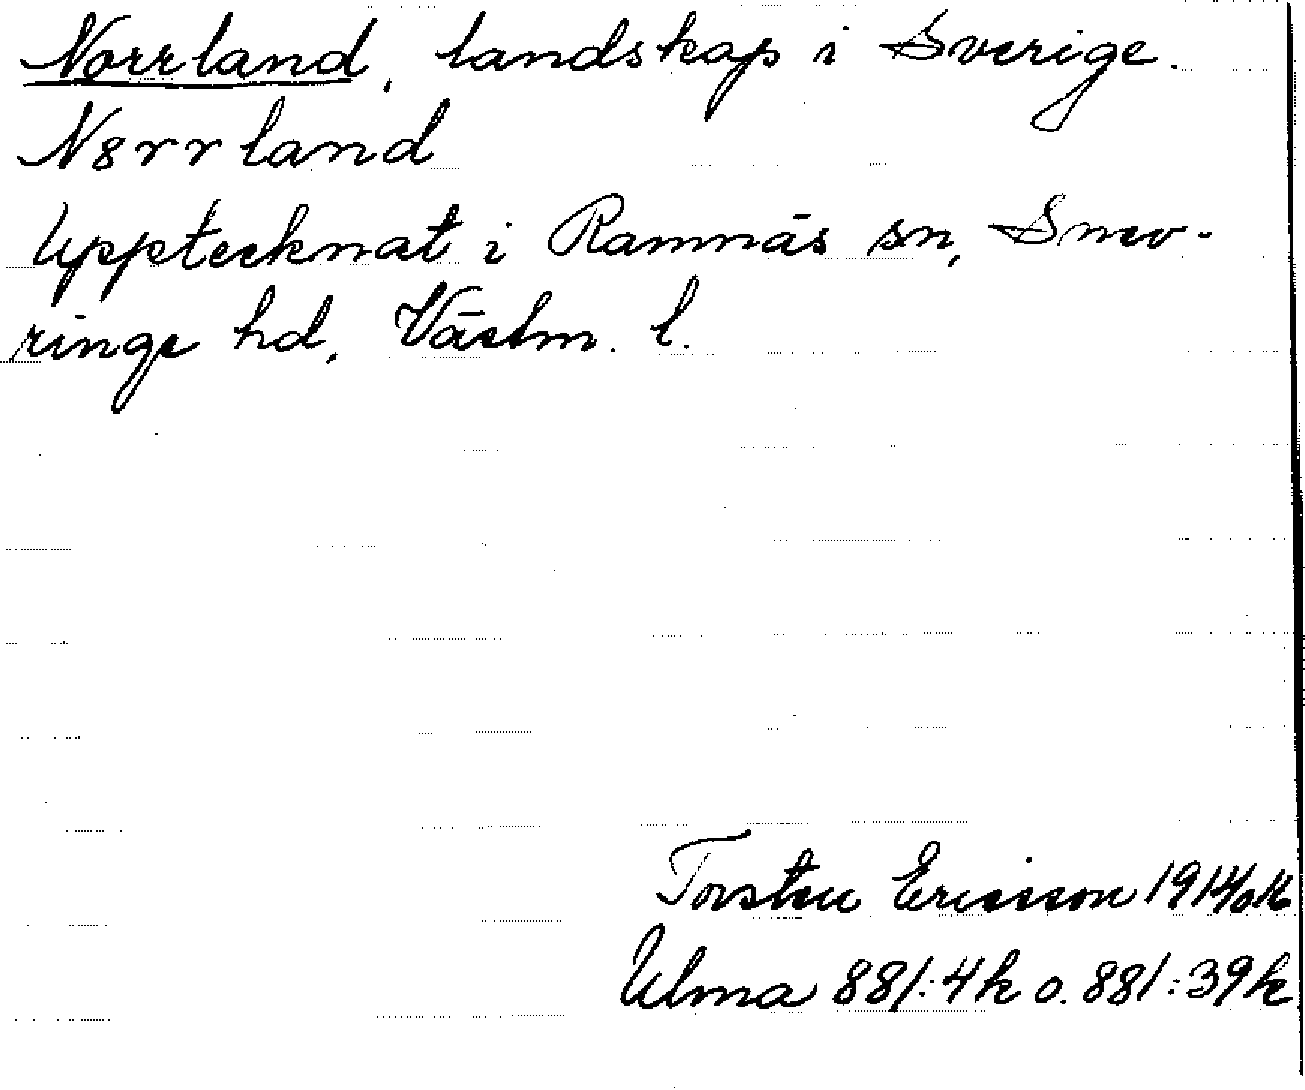 Norrland, landskap i Sverige.
N8rrland
Upptecknat i Ramnäs sn, Snev-
ringe hd, Västm. l.
Torsten Ericsson 1914 o. 16
Ulma 881:4 k o. 881:39 k